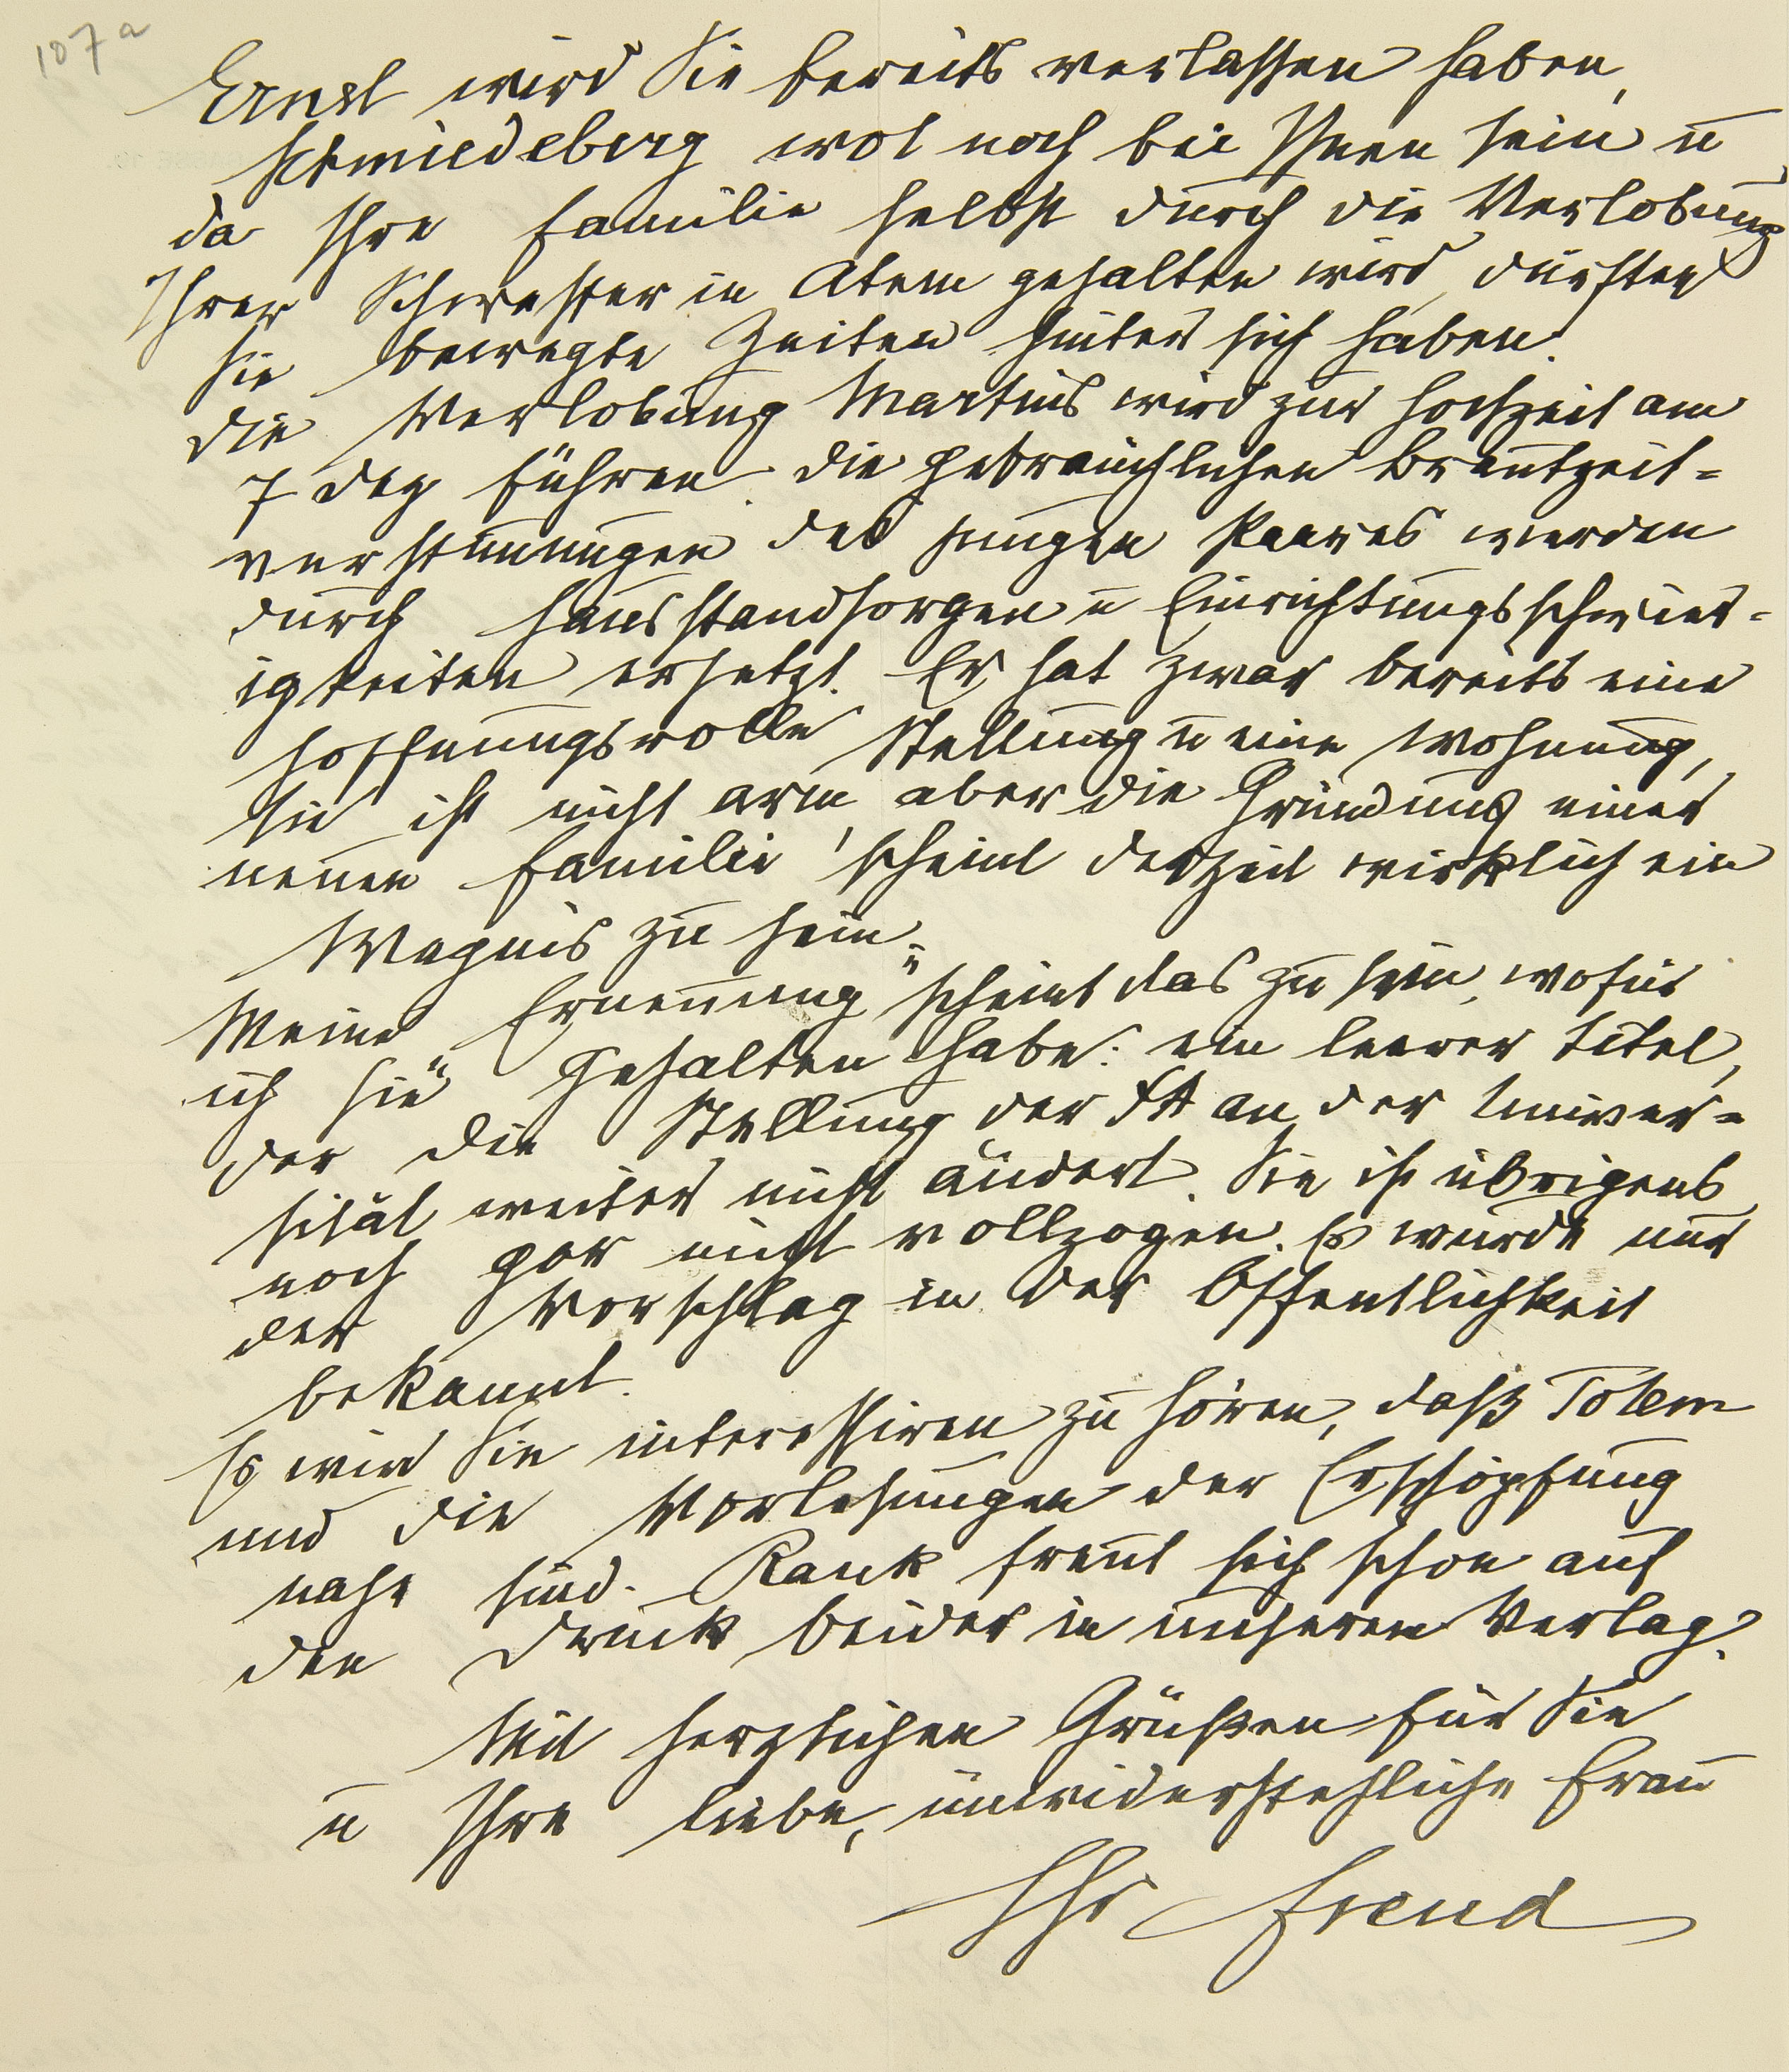 107a
Ernst wird Sie bereits verlassen haben,
Schmiedeberg wol noch bei Ihnen sein u
da Ihre Familie selbst durch die Verlobung
Ihrer Schwester in Atem gehalten wird, dürften
Sie bewegte Zeiten hinter sich haben.
Die Verlobung Martins wird zur Hochzeit am
7 Dez führen. Die gebräuchlichen Brautzeit=
verstimmungen des jungen Paares werden
durch Hausstandsorgen u Einrichtungsschwier=
igkeiten ersetzt. Er hat zwar bereits eine
hoffnungsvolle Stellung u eine Wohnung,
sie ist nicht arm, aber die Gründung einer
neuen Familie scheint derzeit wirklich ein
Wagnis zu sein.
Meine „Ernennung“ scheint das zu sein, wofür
ich sie gehalten habe: ein leerer Titel,
der die Stellung der ΨA an der Univer=
sität weiter nicht ändert. Sie ist übrigens
noch gar nicht vollzogen. Es wurde nur
der Vorschlag in der Öffentlichkeit
bekannt.
Es wird Sie interessiren zu hören, daß Totem
und die Vorlesungen der Erschöpfung
nahe sind. Rank freut sich schon auf
den Druck beider in unserem Verlag.
Mit herzlichen Grüßen für Sie
u Ihre liebe, unwiderstehliche Frau
Ihr Freud